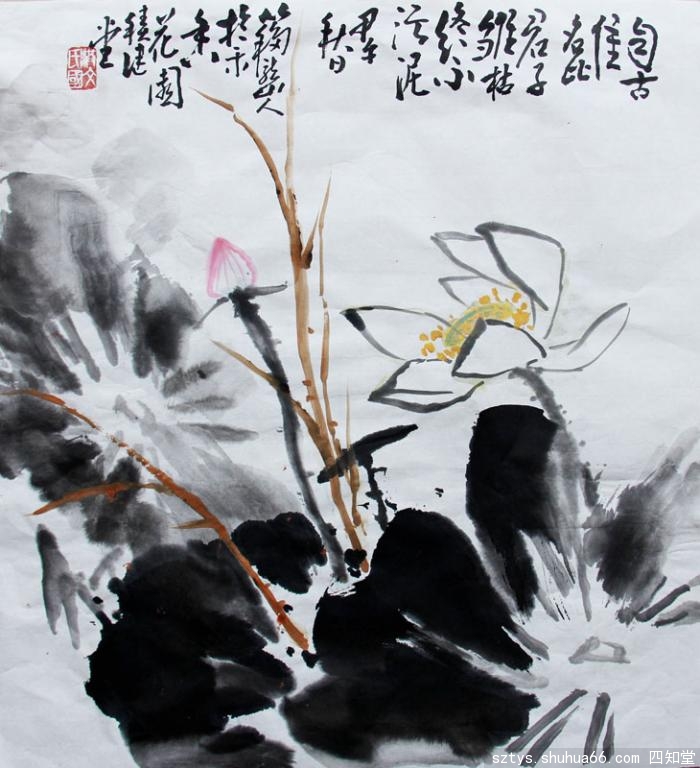 自古
佳
名比
君子
雖枯
終不
污泥
甲午
秋日
人
於木
禾
花園
積健
堂
sztys.shuhua66.com 四知堂